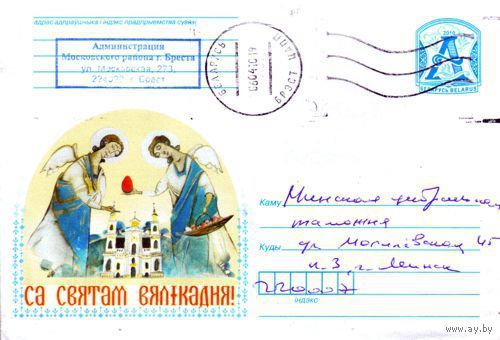 адрас адпраўшчыка і індэкс прадпрыемства сувязі
Администрация
Московского района г. Бреста
ул. Московская, 273,
224020 г. Брест
БЕЛАРУСЬ
060410 19
БРЭСТ
2010
A
Z
БЕЛАРУСЬ BELARUS
СА СВЯТАМ ВЯЛІКАДНЯ!
Каму Минская
таможня
Куды ул. Могилевская 45
г. Минск
220007
індэкс
www.ay.by